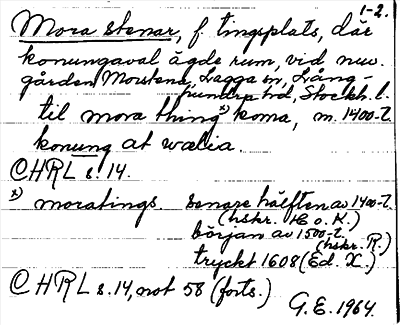 1-2.
Mora stenar, f. tingsplats, där
konungaval ägde rum, vid nuv.
gården Morstena, Lagga sn, Lång-
hundra hd, Stockh. l.
til mora thing x) koma, m. 1400-t.
konung at wælia.
CHRL s. 14.
x) moratings. senare hälften av 1400-t.
(hskr. H o. K.)
början av 1500-t.
(hskr. R.)
tryckt 1608 (Ed. X.)
CHRL s. 14, not 58 (forts.)
G.E. 1964.